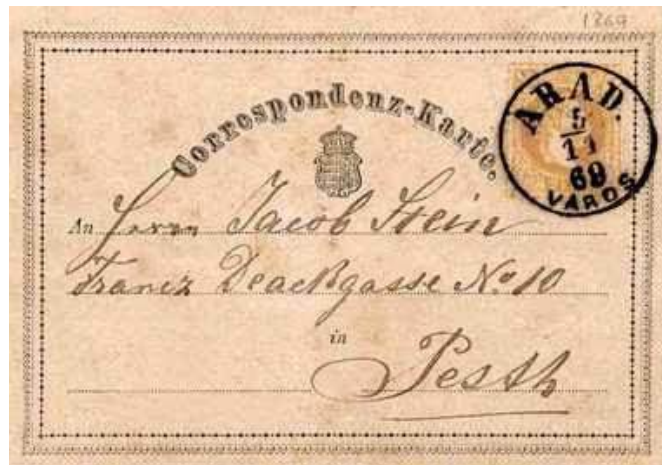 1869
Correspondenz-Karte.
ARAD.
5
11
69
VAROS
An Herrn Jacob Stein
Francz Deackgasse No 10
in
Pesth